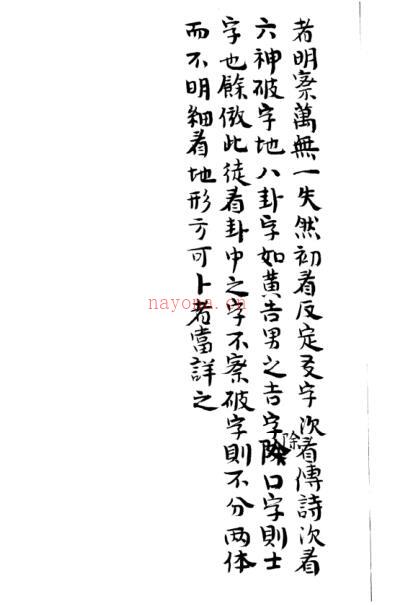 者明察萬無一失然初看反定爻字次看傳詩次看
六神破字地八卦字如黃吉男之吉字除口字則士
字也餘倣此徒看卦中之字不察破字則不分两体
而不明細看地形方可卜者當詳之
除
nayona.cn